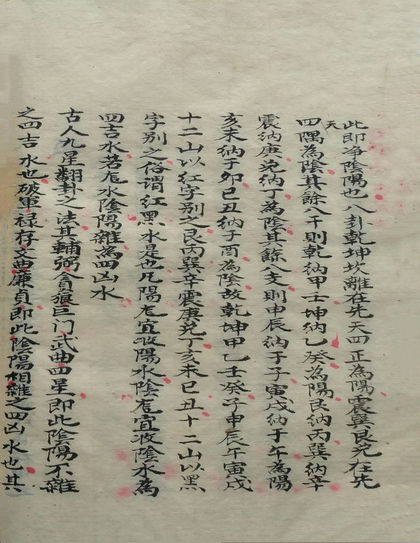 此即净陰陽也八卦乾坤坎離在先天四正為陽震巽艮兌在先
天四隅為陰其餘八干則乾納甲壬坤納乙癸為陽艮納丙巽納辛
震納庚兌納丁為陰其餘八支則申辰納于子寅戌納于午為陽
亥未納于卯巳丑納于酉為陰故乾坤甲乙壬癸子申辰午寅戌
十二山以紅字別之艮丙巽辛震庚兌丁亥未巳丑十二山以黑
字別之俗謂紅黑水是也凡陽龙宜收陽水陰龙宜收陰水為
四吉水若龙水陰陽雜為四凶水
古人九星翻卦之法其輔弼貪狼巨门武曲四星即此陰陽不雜
之四吉水也破軍禄存文曲廉貞即此陰陽相雜之四凶水也其